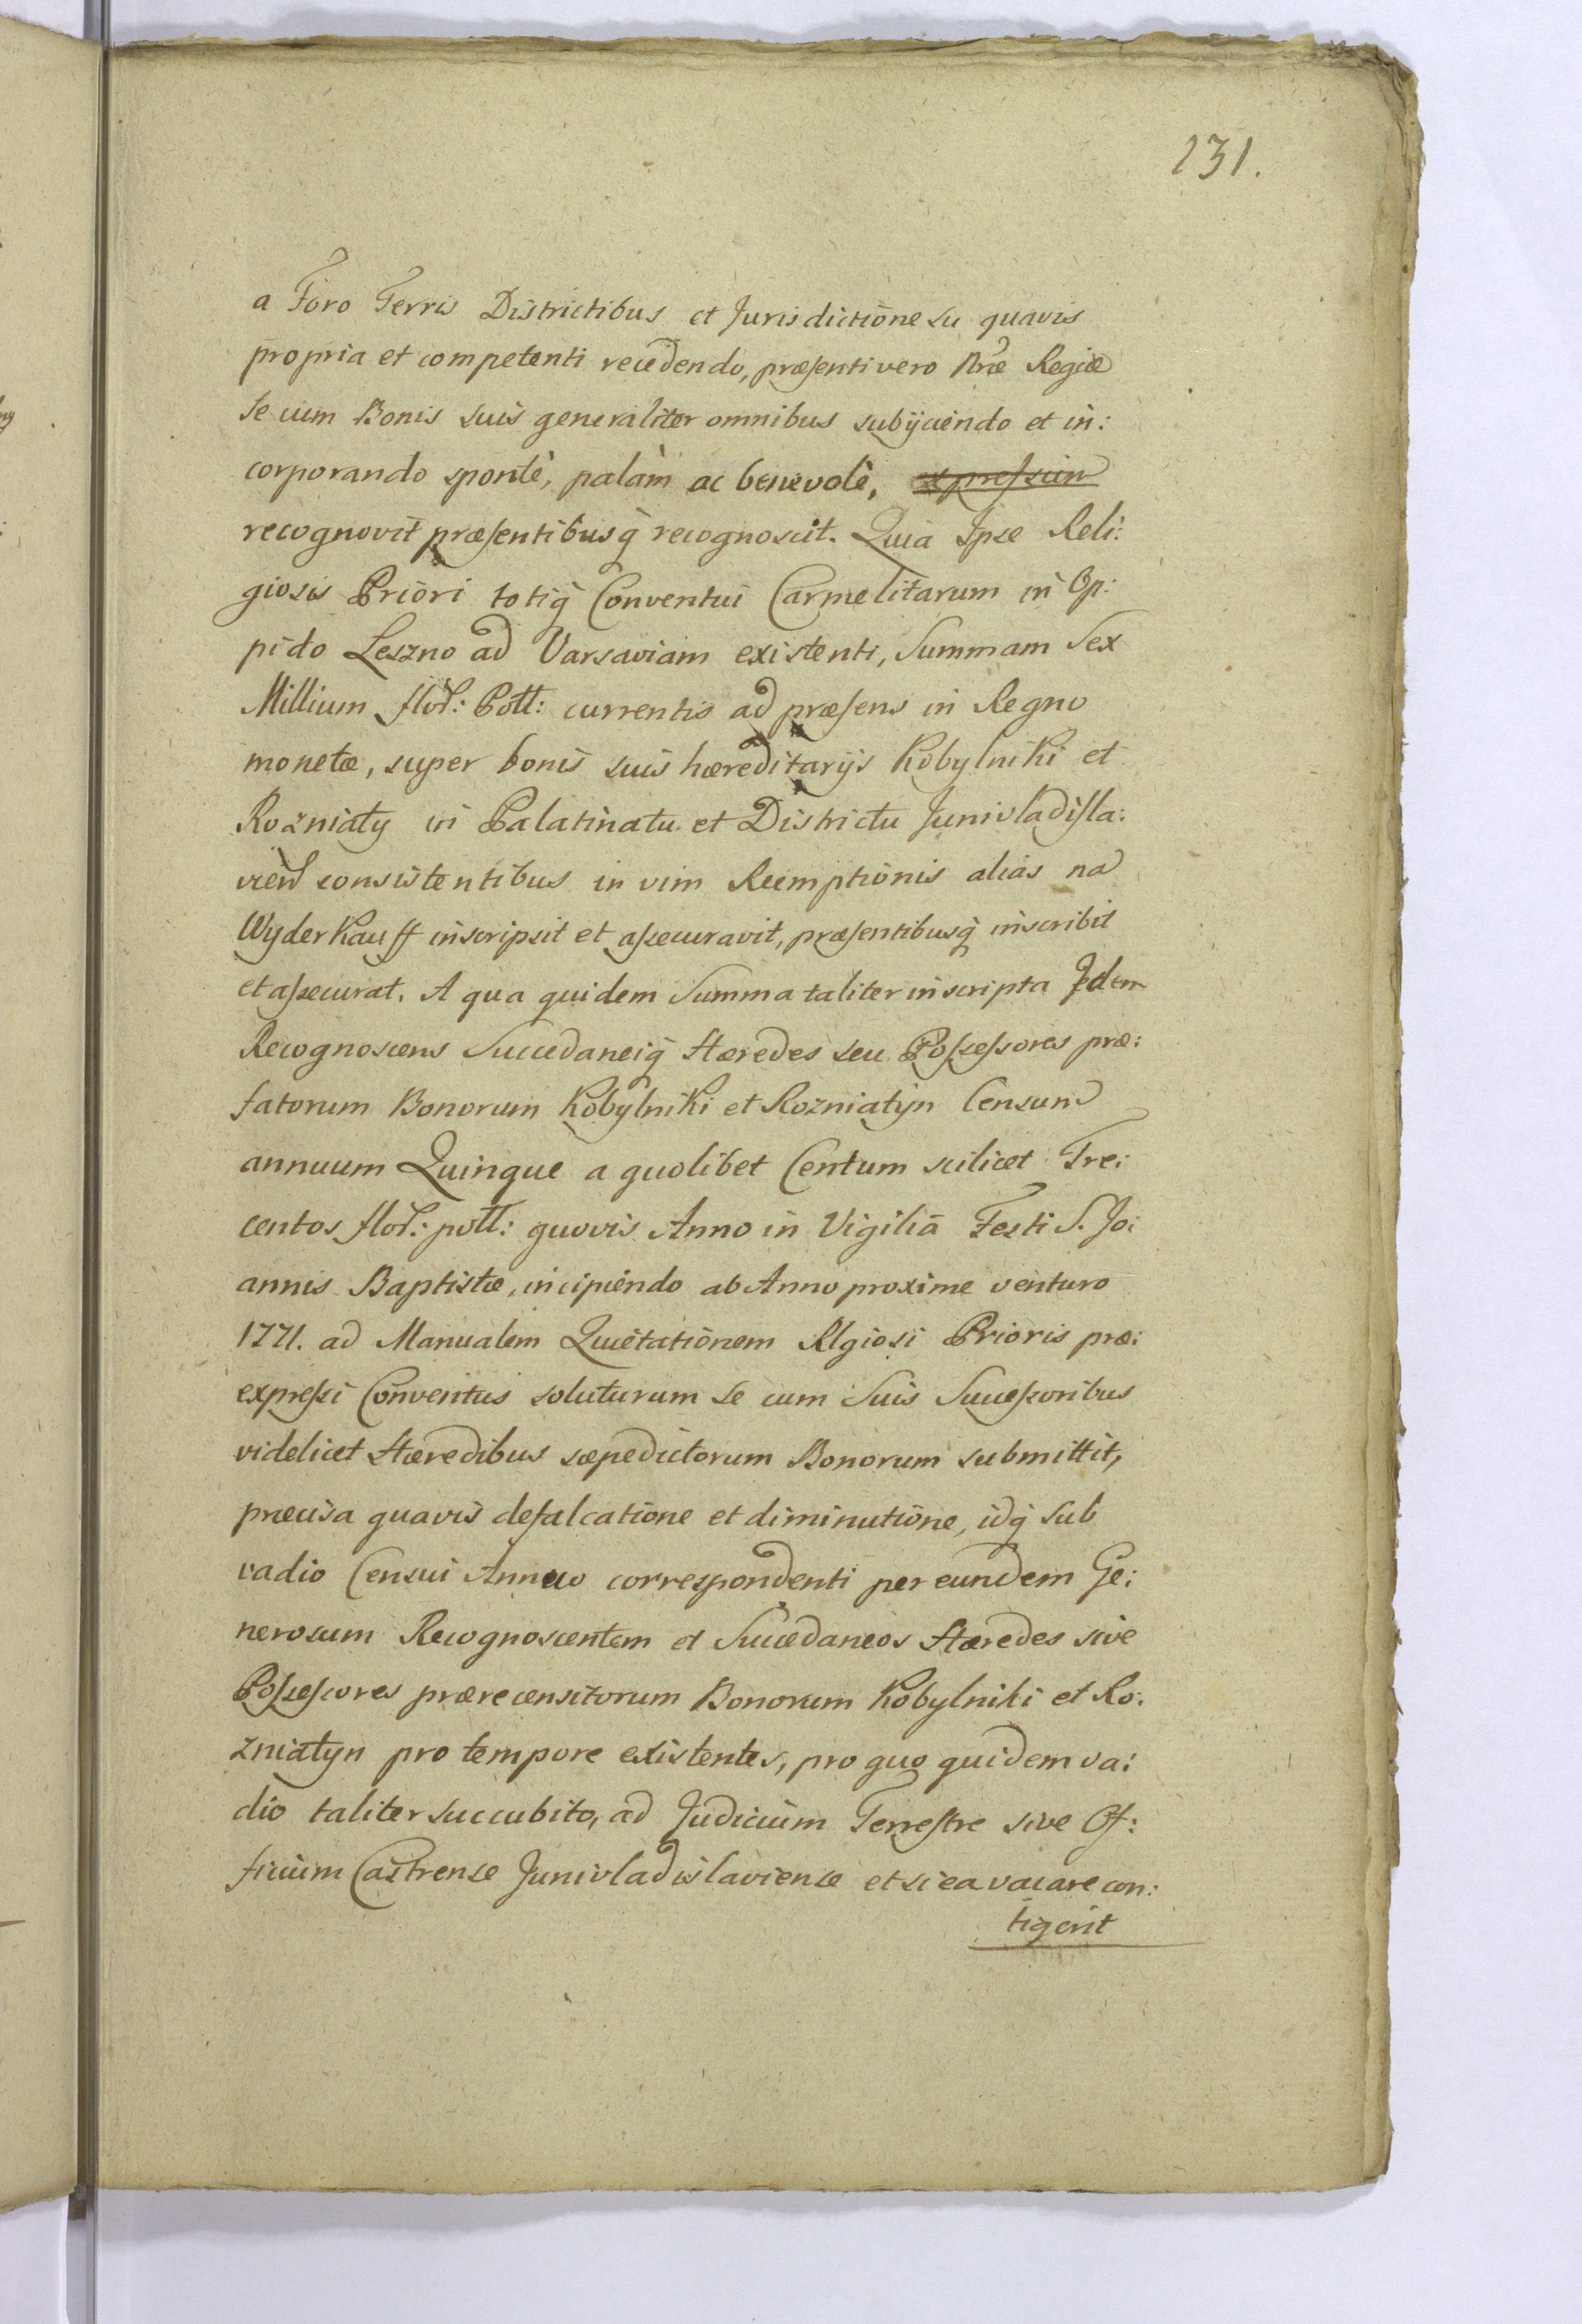 231.
a Foro Terris Districtibus et Jurisdictione su quavis
propria et competenti recedendo, præsenti vero Nræ Regiæ
se cum Bonis suis generaliter omnibus subijciendo et in:
corporando spontè, palàm ac benevolè, expressim
recognovit præsentibusq́ recognoscit. Quia Ipse Reli:
giosis Priori totiq́ Conventui Carmelitarum in Op:
pido Leszno ad Varsaviam existenti, Summam Sex
Millium flor: Poll: currentis ad præsens in Regno
monetæ, super bonis suis hæreditarijs Kobylniki et
Rozniaty in Palatinatu et Districtu Junivladisla:
vien consistentibus in vim Reemptionis alias na
Wyderkauff inscripsit et assecuravit, præsentibusq́ inscribit
et assecurat. A qua quidem Summa taliter inscripta Idem
Recognoscens Succedaneiq́ Hæredes seu Possessores præ:
fatorum Bonorum Kobylniki et Rozniatyn Censum
annuum Quinque a quolibet Centum scilicet Tre:
centos flor: poll: quovis Anno in Vigiliā Festi S. Jo:
annis Baptistæ, incipiendo ab Anno proxime venturo
1771. ad Manualem Quietationem Rlgiosi Prioris præ:
expressi Conventus soluturum se cum Suis Successoribus
videlicet Hæredibus sæpedictorum Bonorum submittit,
præcisa quavis defalcatione et diminutione, idq́ sub
vadio Censui Annuo correspondenti per eundem Ge:
nerosum Recognoscentem et Succedaneos Hæredes sive
Possessores prærecensitorum Bonorum Kobylniki et Ro:
zniatyn pro tempore existentes, pro quo quidem va:
dio taliter succubito, ad Judicium Terrestre sive Of:
ficium Castrense Junivladislaviense et si ea vacare con:
tigerit